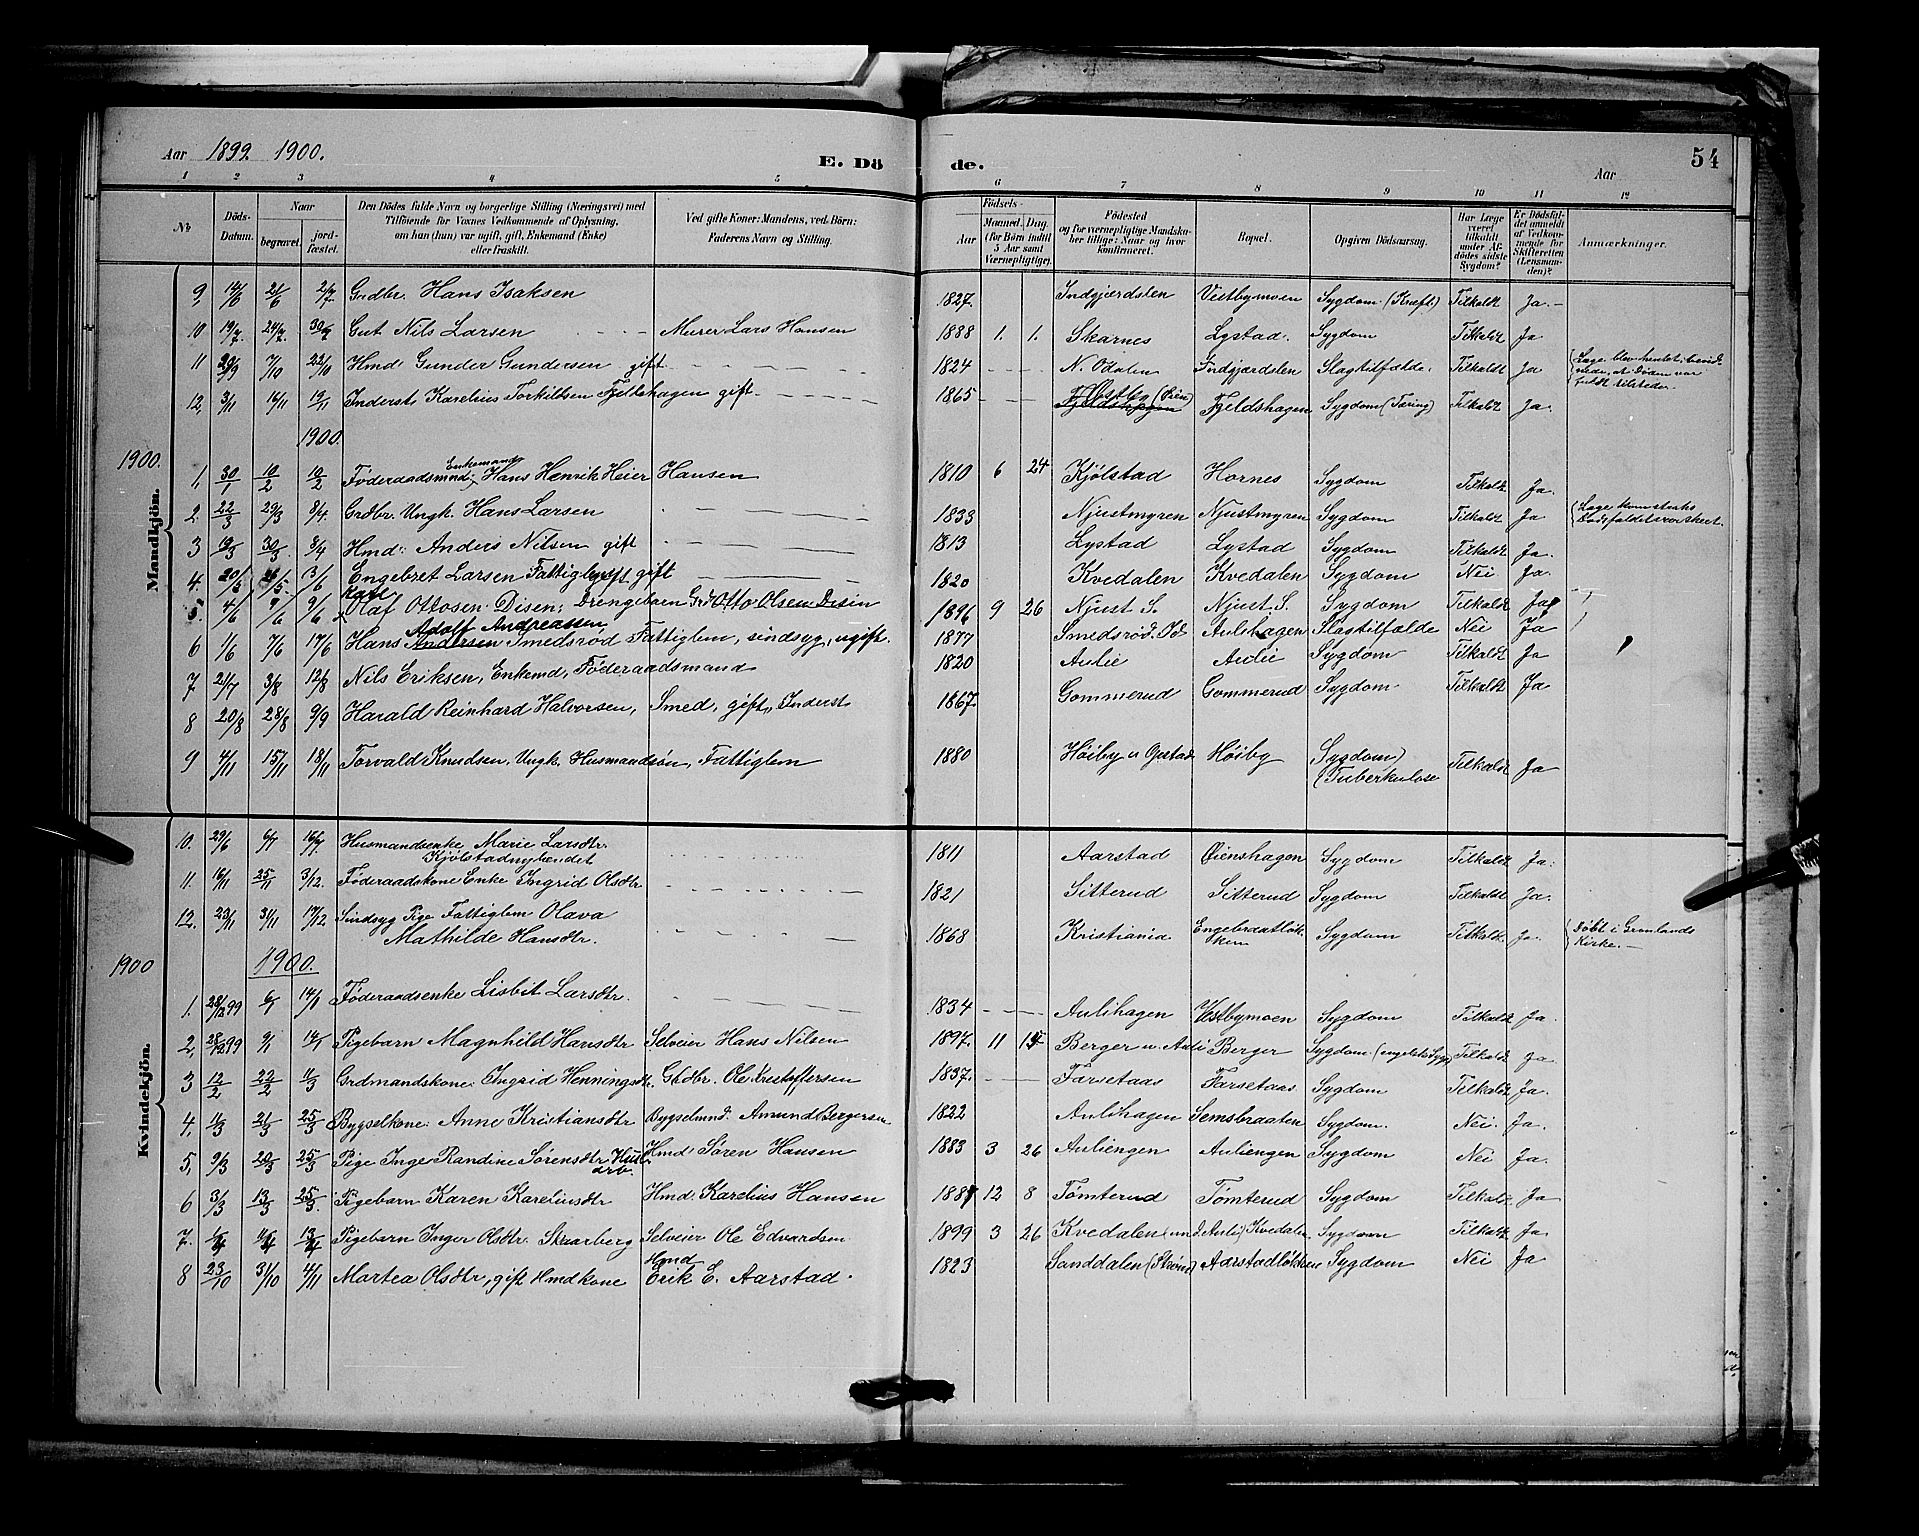 Aar 1899. 1900.
E. Dö de.
54
Aar
1 2 3 4 5 6 7 8 9 10 11 12
№
Döds-Datum.
Naar
begravet.
jordfæstet.
Den Dödes fulde Navn og borgerlige Stilling (Næringsvei) med
Tilföiende for Voxnes Vedkommende af Oplysning,
om han (hun) var ugift, gift, Enkemand (Enke)
eller fraskilt.
Ved gifte Koner: Mandens, ved Börn:
Faderens Navn og Stilling.
Födsels-
Aar
Maaned. Dag.
(for Börn indtil
5 Aar samt
Værnepligtige).
Födested
og for værnepligtige Mandska-
ber tillige: Naar og hvor
konfirmeret.
Bopæl.
Opgiven Dödsaarsag.
Har Læge
været
tilkaldt
under Af-
dödes sidste
Sygdom?
Er Dödsfal-
det anmeldt
af Vedkom-
mende for
Skifteretten
(Lensman-
den)?
Anmærkninger.
Mandkjön.
9. 14/6 21/6 2/7 Grdbr. Hans Isaksen 1827. Indgjærdslen Vestbymoen Sygdom (Kræft) Tilkaldt Ja.
10 19/7 24/7 30/7 Gut Nils Larsen Murer Lars Hansen 1888 1. 1. Skarnes Lystad. Sygdom Tilkaldt Ja
11 29/9 7/10 22/10 Hmd: Gunder Gundersen gift 1824 N. Odalen Indgjærdslen Slagtilfælde. Tilkaldt Ja
Læge blev hentet
12, 3/11 16/11 19/11 Inderst Karelius Torkildsen Fjeldshagen gift 1865 Ostby (Øien) Fjeldshagen Sygdom (Tæring) Tilkaldt Ja.
1900.
1900.
1, 30/1 10/2 10/2 Föderaadsmnd: Enkemand Hans Henrik Heier Hansen 1810 6 24 Kjølstad Hornes Sygdom Tilkaldt Ja.
2. 22/3 29/3 8/4 Grdbr. Ungk. Hans Larsen 1833 Njustmyren Njustmyren Sygdom Tilkaldt Ja
Læge kom straks
Dødsfaldet var skeet
3 19/3 30/3 8/4 Hmd: Anders Nilsen gift 1813 Lystad Lystad Sygdom Tilkaldt Ja.
4. 20/5 3/6 Engebret Larsen Fattiglem gift 1820 Kvedalen Kvedalen Sygdom Nei Ja.
5. 4/6 9/6 9/6 Olaf Ottosen Disen; Drengebarn Grd Otto Olsen Disin 1896 9 26 Njust S. Njust S. Sygdom Tilkaldt Ja
6 1/6 7/6 17/6 Hans Adolf Andreassen Andersen Smedsrød Fattiglem, sindsyg, ugift. 1877 Smedsrød. Od Aulihagen Slagtilfælde Nei Ja
7 21/7 3/8 12/8 Nils Eriksen, Enkemd, Föderaadsmand 1820 Aulie Aulie Sygdom Tilkaldt Ja
8 20/8 28/8 9/9 Harald Reinhard Halvorsen, Smed, gift, Inderst 1867. Gommerud Gommerud Sygdom Tilkaldt Ja
9 4/11 15/11 18/11 Torvald Knudsen, Ungk. Husmandssøn, Fattiglem 1880 Höiby u Opstad Höiby Sygdom (Tuberkulose) Tilkaldt Ja
Kvindekjön.
10. 29/6 6/7 16/7 Husmandsenke Marie Larsdtr. 1811 Aarstad Øienshagen Sygdom Tilkaldt Ja.
Kjölstadnybendet
11. 16/11 25/11 3/12. Föderaadskone Enke Ingrid Olsdtr. 1821 Sitterud Sitterud Sygdom Tilkaldt Ja.
12. 23/11 31/11 17/12 Sindsyg Pige Fattiglem Olava 1868 Kristiania Sygdom Tilkaldt. Ja.
Mathilde Hansdtr.
Døbt i Grønlands
Kirke.
1900
1900.
1. 28/12 99 6/1 14/1 Föderaadsenke Lisbit Larsdtr. 1834 Aulihagen Vestbymoen Sygdom Tilkaldt Ja.
2, 28/12 99 9/1 14/1 Pigebarn Magnhild Hansdtr Selveier Hans Nilsen 1897. 11 Berger u. Auli Berger Sygdom. (engelsk Syge) Tilkaldt Ja.
3 12/2 22/2 11/3 Grdmandskone: Ingrid Henningsdtr. Grdbr. Ole Kristoffersen 1837. Farsetaas Farsetaas Sygdom Tilkaldt Ja.
4, 11/3 21/3 25/3 Bygselkone: Anne Kristiansdtr Bygselmnd. Amund Bergersen 1822 Aulihagen Semsbraaten Sygdom. Nei. Ja.
5, 9/3 20/3 25/3 Pige Inge Randine Sørensdtr. Hmd: Søren Hansen 1883 3 26 Auliengen Auliengen Sygdom Nei Ja.
6 3/3 13/3 25/3. Pigebarn Karen Kareliusdtr Hmd: Karelius Hansen 1887 12 8 Tømterud Tømterud Sygdom Tilkaldt Ja
7. 13/4 Pigebarn Inger Olsdtr. Skarberg Selveier Ole Edvardsen 1899 3 26 Kvedalen (und. Auli) Kvedalen Sygdom Tilkaldt Ja
8 23/10 31/10 4/11 Martea Olsdtr, gift Hmdkone Hmd Erik E. Aarstad 1823 Sanddalen (Strøm) Aarstadløkken Sygdom Nei Ja